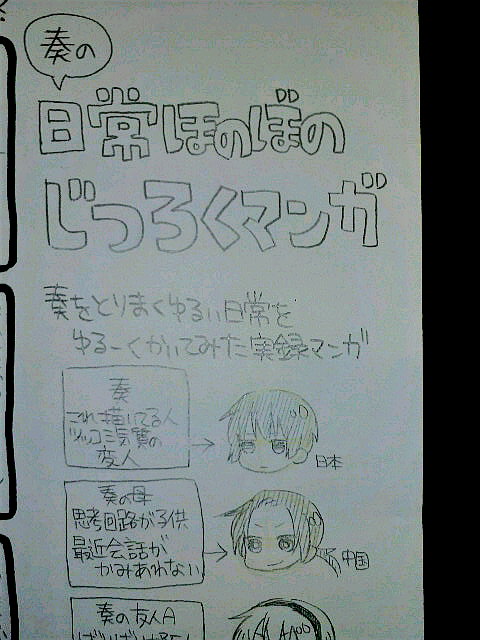 奏の
日常ほのぼの
じつろくマンガ
奏をとりまくゆるい日常を
ゆるーくかいてみた実録マンガ
奏
これ描いてる人
ツッコミ気質の
変人
日本
奏の母
思考回路が子供
最近会話が
かみあわない
中国
奏の友人A